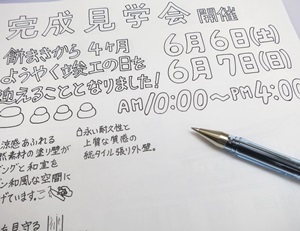 完成見学会開催
餅まきから4ヶ月
ようやく竣工の日を
迎えることとなりました!
6月6日(土)
6月7日(日)
AM10:00〜PM4:00
涼感あふれる
然素材の塗り壁が
ングと和室を
ン和風な空間に
げています。
①永い耐久性と
上質な質感の
総タイル張り外壁。
を見守る